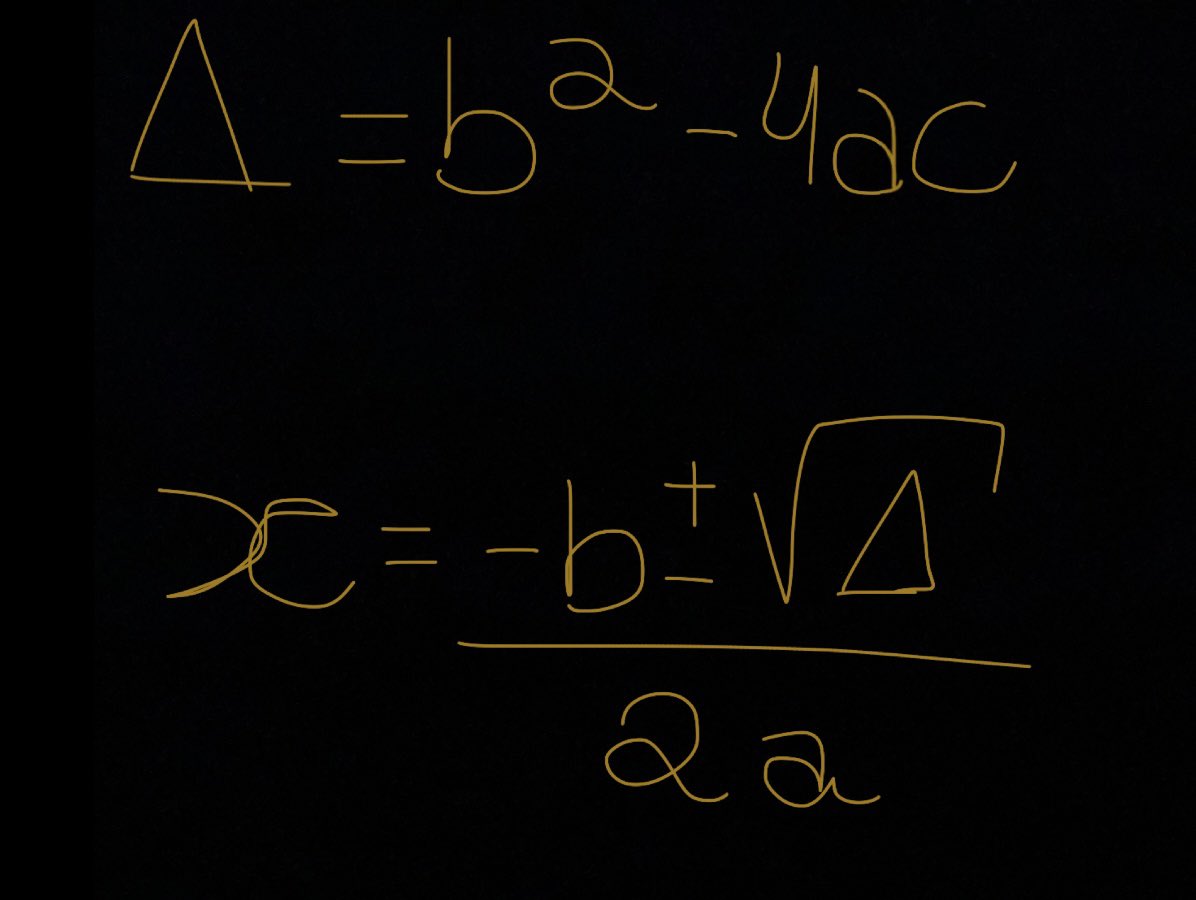 Δ = b² - 4ac
x = -b ± √Δ
2a